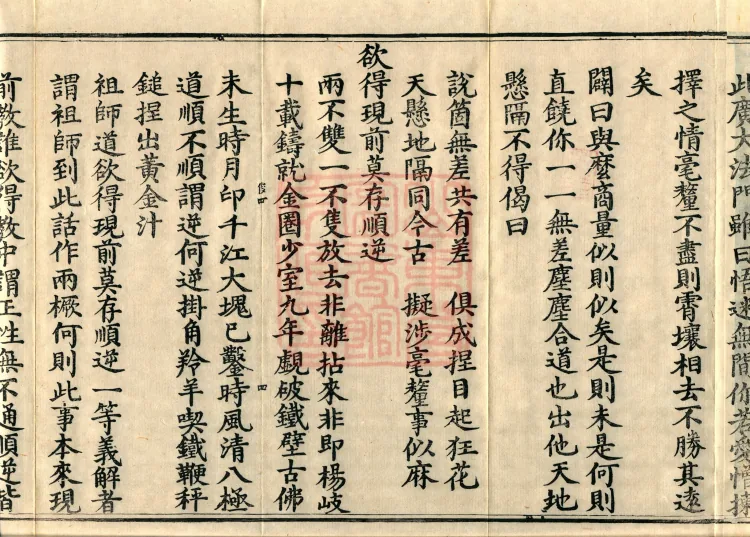 此廣大法門雖曰悟迷無間你若愛憎揀
擇之情毫釐不盡則霄壤相去不勝其遠
矣
闢曰與麼商量似則似矣是則未是何則
直饒你一一無差塵塵合道也出他天地
懸隔不得偈曰
說箇無差共有差 俱成捏目起狂花
天懸地隔同今古 擬涉毫釐事似麻
欲得現前莫存順逆
兩不雙一不隻放去非離拈來非即楊岐
十載鑄就金圈少室九年覷破鐵壁古佛
未生時月印千江大塊已鑿時風清八極
道順不順謂逆何逆掛角羚羊喫鐵鞭秤
鎚捏出黃金汁
祖師道欲得現前莫存順逆一等義解者
謂祖師到此話作兩橛何則此事本來現
前教誰欲得教中謂正性無不通順逆皆